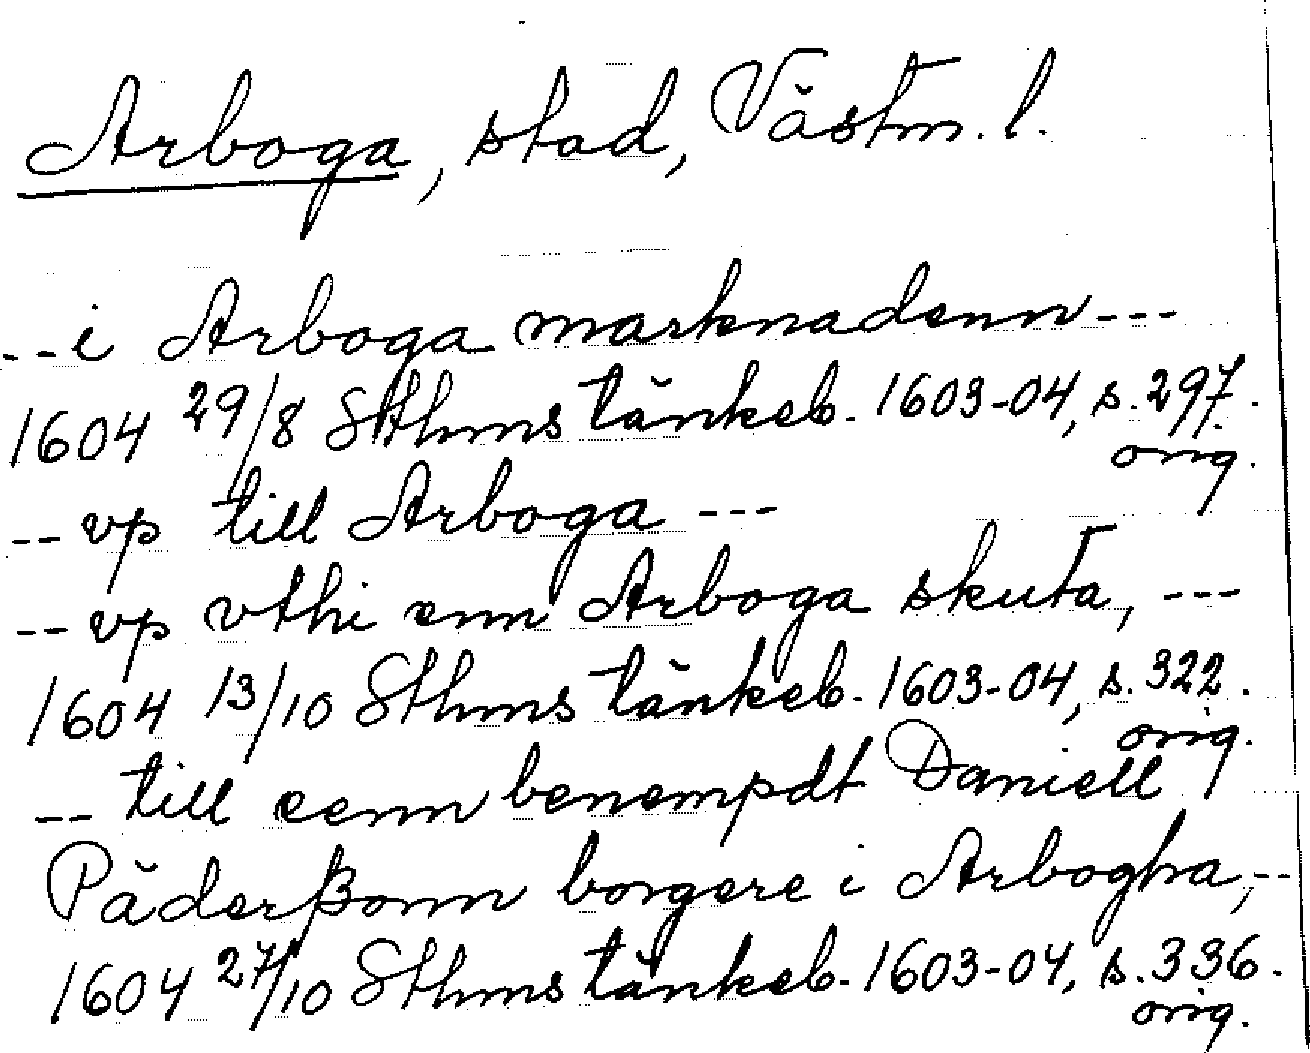 Arboga, stad, Västm. l.
--i Arboga marknadenn---
1604 29/8 Sthms tänkeb. 1603-04, s. 297.
orig.
--vp till Arboga ---
--vp vthi enn Arboga skuta, ---
1604 13/10 Sthms tänkeb. 1603-04, s. 322.
orig.
-- till eenn benempdt Daniell
Päderßonn borgere i Arbogha,--
1604 27/10 Sthms tänkeb. 1603-04, s. 336.
orig.